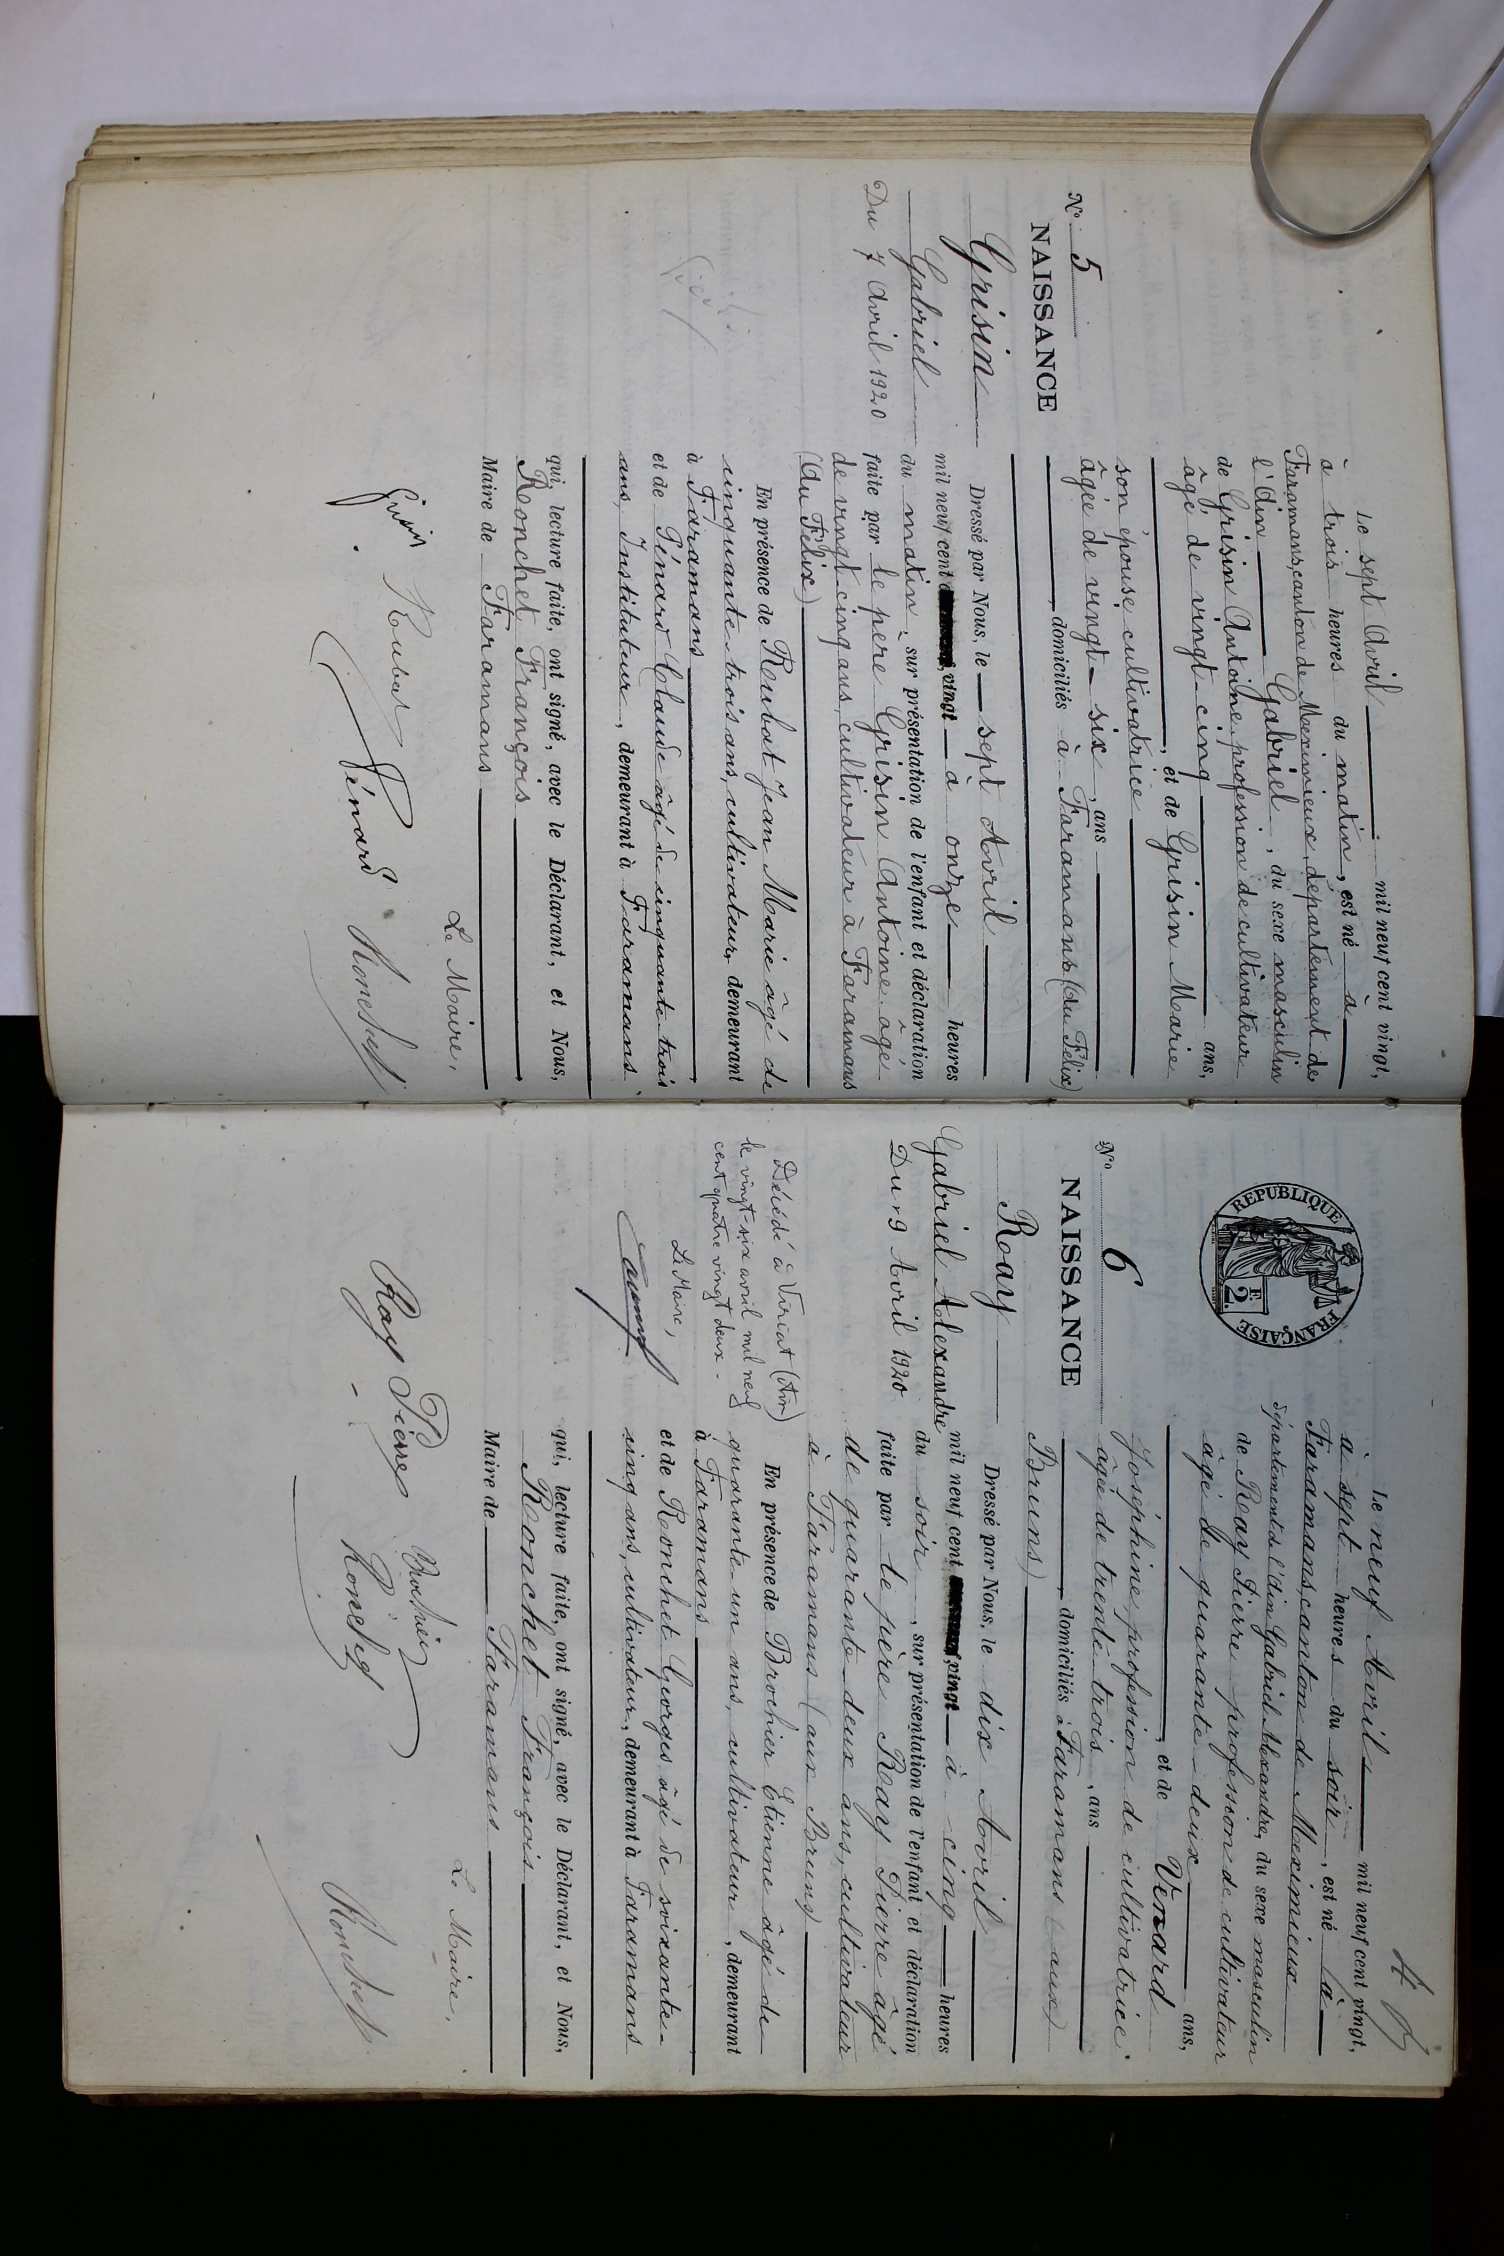 N° 5
NAISSANCE
Grisin
Gabriel
Du 7 Avril 1920
Le sept Avril mil neuf cent vingt,
à trois heures du matin, est né à
Faramans, canton de Meximieux, département de
l'Ain Gabriel, du sexe masculin
de Grisin Antoine, profession de cultivateur
âgé de vingt-cinq ans,
, et de Grisin Marie
son épouse, cultivatrice
âgée de vingt-six, ans
, domiciliés à Faramans (du Félix)
Dressé par Nous, le sept Avril
mil neuf cent vingt à onze heures
du matin, sur présentation de l'enfant et déclaration
faite par le père Grisin Antoine âgé
de vingt-cinq ans, cultivateur à Faramans
(du Félix)
En présence de Roubat Jean Marie âgé de
cinquante-trois ans, cultivateur, demeurant
à Faramans
et de Pénard Claude âgé de cinquante-trois
ans, Instituteur, demeurant à Faramans
qui, lecture faite, ont signé, avec le Déclarant, et Nous,
Ronchet François
Maire de Faramans
Le Maire,
Grisin Roubat Pénard Ronchet
4
REPUBLIQUE FRANÇAISE
2 F.
N° 6
NAISSANCE
Roay
Gabriel Alexandre
Du 9 Avril 1920
Décédé à Viriat (Ain)
le vingt-six avril mil neuf
cent quatre vingt deux.
Le Maire,
Le neuf Avril mil neuf cent vingt,
à sept heures du soir, est né à
Faramans, canton de Meximieux
département de l'Ain Gabriel Alexandre, du sexe masculin
de Roay Pierre profession de cultivateur
âgé de quarante-deux ans,
, et de Vénard
Joséphine profession de cultivatrice
âgée de trente-trois, ans
, domiciliés à Faramans (aux
Bruns)
Dressé par Nous, le dix Avril
mil neuf cent vingt à cinq heures
du soir, sur présentation de l'enfant et déclaration
faite par le père Roay Pierre âgé
de quarante-deux ans, cultivateur
à Faramans (aux Bruns)
En présence de Brochier Etienne âgé de
quarante-un ans, cultivateur, demeurant
à Faramans
et de Ronchet Georges âgé de soixante-
cinq ans, cultivateur, demeurant à Faramans
qui, lecture faite, ont signé, avec le Déclarant, et Nous,
Ronchet François
Maire de Faramans
Le Maire,
Roay Pierre Brochier Ronchet Ronchet